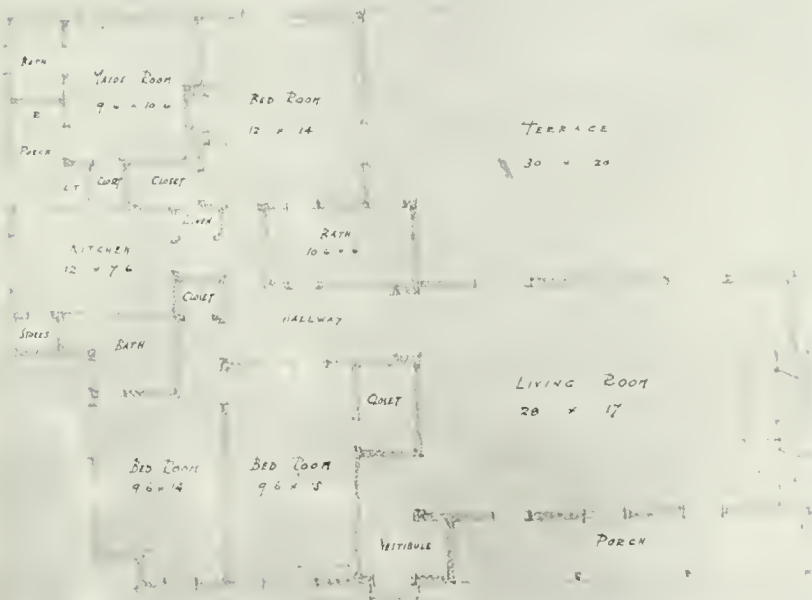 BATH
MAIDS ROOM
9 6 x 10 6
BED ROOM
12 x 14
TERRACE
30 x 20
&
PORCH
CLOSET
LINEN
KITCHEN
12 x 7 6
BATH
CLOSET
HALLWAY
STORES
BATH
CLOSET
LIVING ROOM
28 x 17
BED ROOM
9 6 x 14
BED ROOM
9 6 x 15
VESTIBULE
PORCH